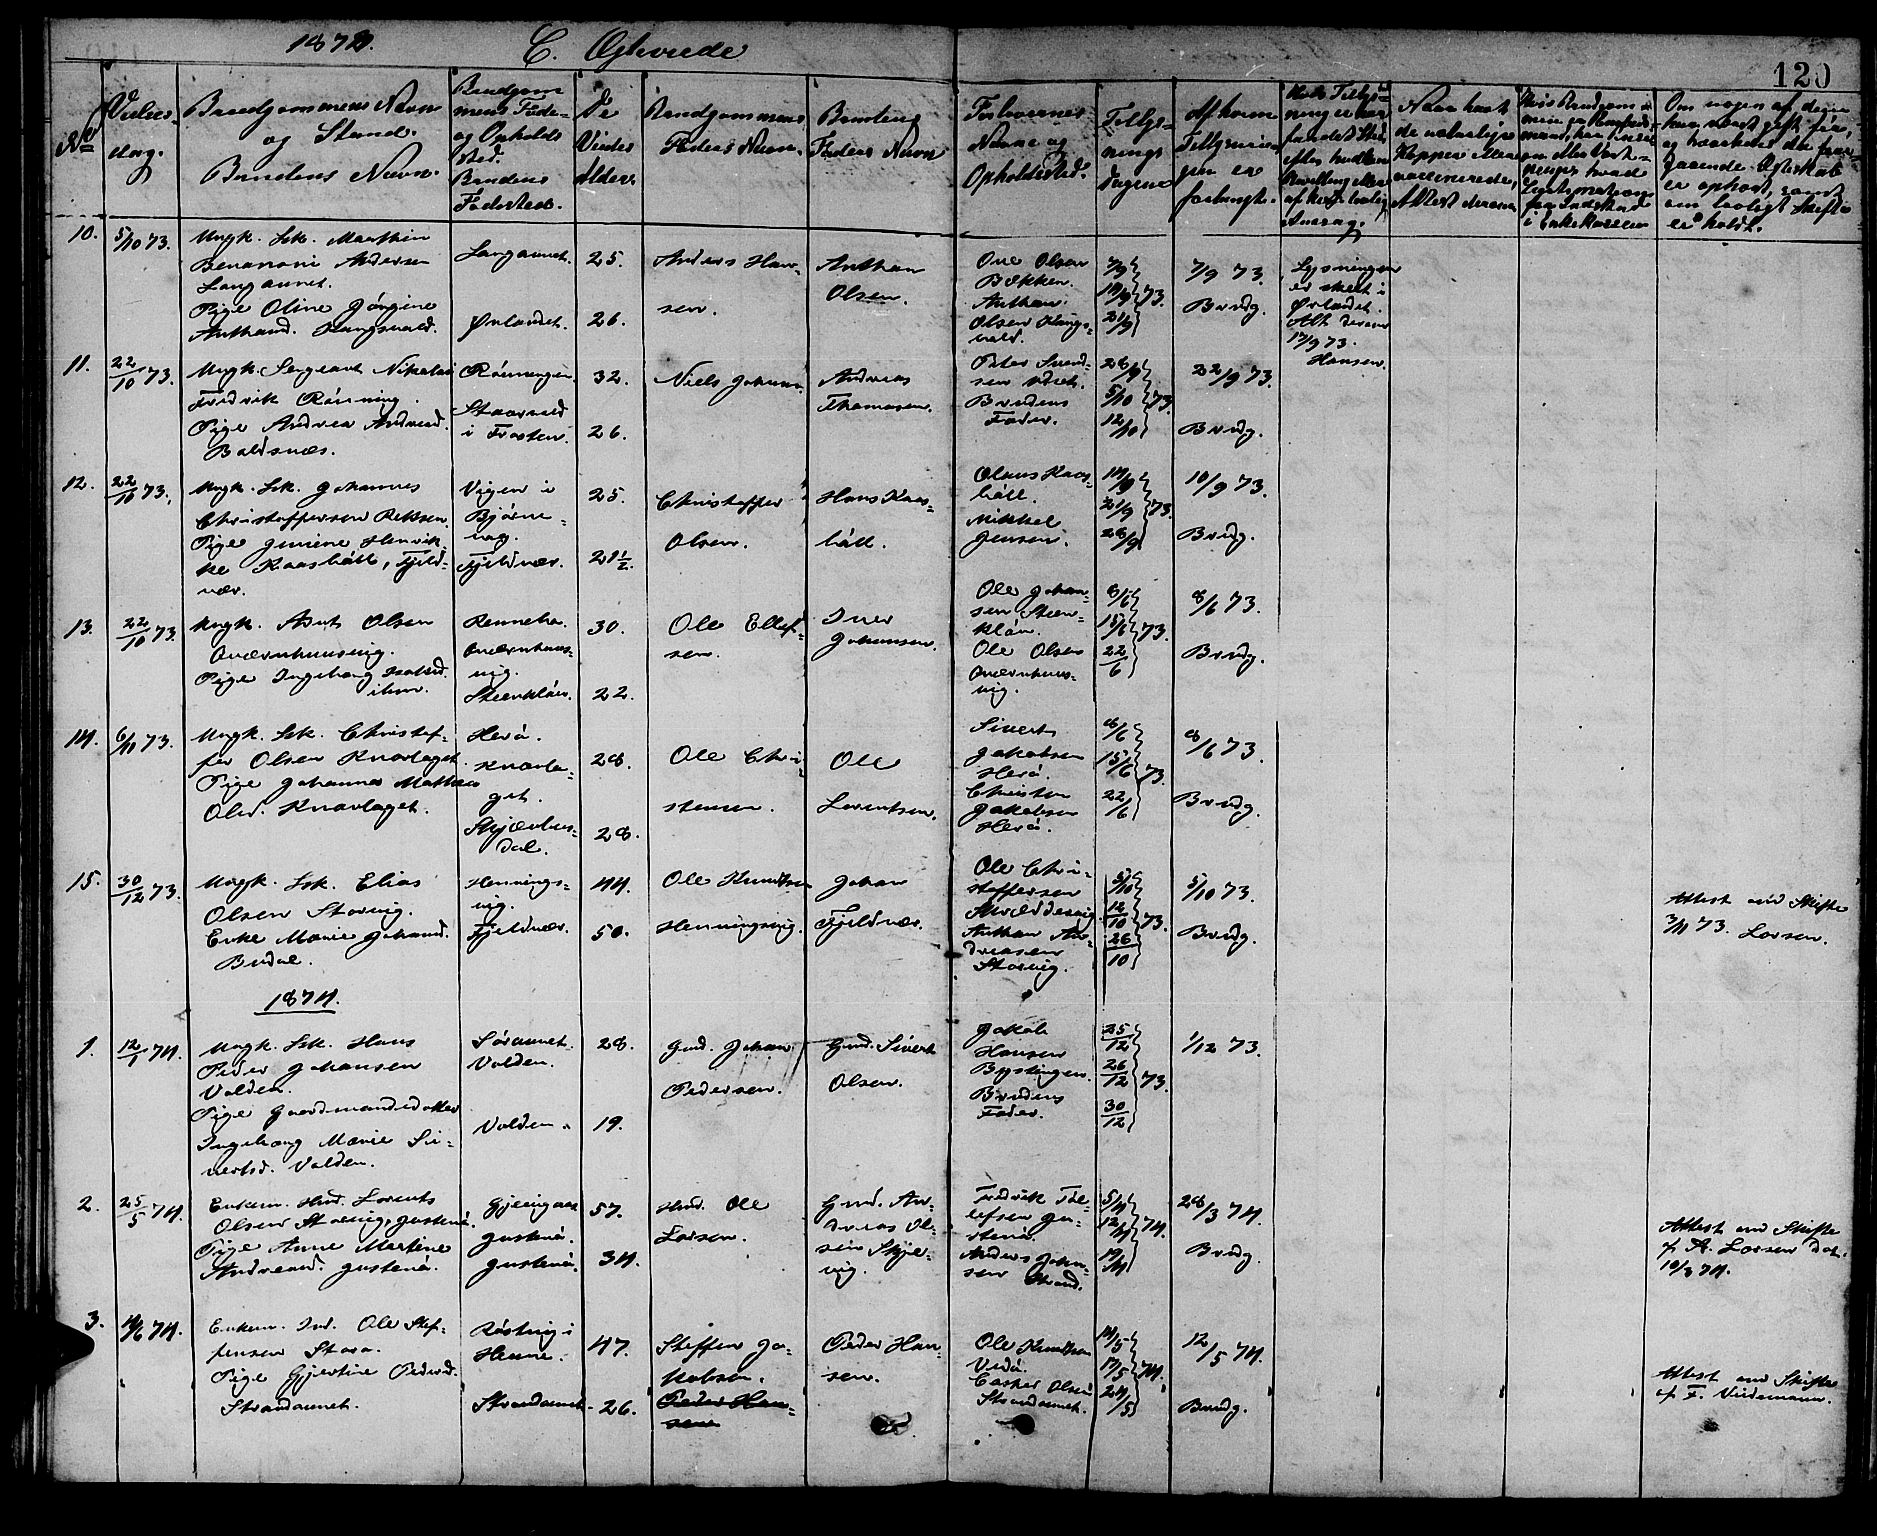 1873. C. Ægteviede
120
No
Vielses-
dag.
Brudgommens Navn
og Stand.
Brudens Navn.
Brudgom
mens Føde-
og Opholds
sted.
Brudens
Fødested.
De
Viedes
Alder.
Brudgommens
Faders Navn.
Brudens
Faders Navn
Forlovernes
Navne og
Opholdssted.
Tillys-
nings
dagene
Af hvem
Tillysnin
gen er
forlangt.
Om nogen af dem
har været gift før,
er ophørt, samt
om lovligt Skifte
er holdt.
10. 5/10 73.
Ungk. Isk. Marthin
Benanoni Andersen
Langaunet.
Pige Oline Jørgine
Anthand. Hangsvald.
Langaunet.
Ørlandet.
25.
26.
Anders Han-
sen.
Anthon
Olsen.
Ove Olsen
Bækken.
Anthon
Olsen Haugs-
vald.
7/9
14/9 73.
21/9
7/9 73.
Brudg.
Lysningen
er skeet i
Ørlandet.
Att. derom
17/9 73.
Hansen.
11. 22/10 73.
Ungk. Sergeant Nikolai
Fredrik Rønning.
Pige Andrea Andreasd.
Baldsnæs.
Rønningen.
i Frosten.
32.
26.
Niels Johnsen.
Andreas
Thomasen.
Peter Svend-
sen
Brudens
Fader.
28/9
5/10 73.
12/10
22/9 73.
Brudg.
12. 22/10 73.
Ungk. Isk. Johannes
Christoffersen
Pige Jensine Henrik
ke Kaasbøll, Fjeld-
vær.
Vigen i
Bjørne-
vag.
Fjeldvær.
25.
21½.
Christoffer
Olsen.
Hans Kaas-
bøll.
Olaus Kaas-
bøll.
Mikkel
Jensen.
14/9
21/9 73.
28/9
10/9 73.
Brudg.
13. 22/10 73.
Ungk. Arnt Olsen
Qværnhuusvig.
Pige Ingeborg
Qværnhuus-
vig.
Steenkløv.
30.
22.
Ole Ellef-
sen.
Iver
Johansen.
Ole Johan-
sen Steen-
kløv.
Ole Olsen
Qværnhuus-
vig.
8/6
15/6 73.
22/6
8/6 73.
Brudg.
14. 6/11 73.
Ungk. Isk. Christof-
fer Olsen Knarlaget.
Pige Johanna Mathea
Olsd. Knarlaget.
Herø.
Knarla-
get.
28.
28.
Ole Chri-
stensen.
Ole
Lorentsen.
Sivert
Jakobsen
Herø.
Christen
Jakobsen
Herø.
8/6
15/6 73.
22/6
8/6 73.
Brudg.
15. 30/12 73.
Ungk. Isk. Elias
Olsen Storvig.
Enke Marie Johansd.
Budal.
Hennings-
vig.
Fjeldvær.
44.
50.
Ole Knudtsen
Henningsvig.
Johan
Fjeldvær.
Ole Chri-
stoffersen
Skræddervig.
Anthon An-
dreasen
Storvig.
5/10
12/10 73.
26/10
5/10 73.
Brudg.
Attest ved Skifte
3/11 73. Larsen.
1874.
1. 12/1 74.
Ungk. Isk. Hans
Peder Johansen
Valden.
Pige Gaardmandsdatter
Ingeborg Marie Si-
vertsd. Valden.
Søraunet.
Valden.
Valden.
28.
19.
Gmd. Johan
Pedersen.
Gmd. Sivert
Olsen.
Jakob
Hansen
Bystingen.
Brudens
Fader.
25/12
26/12 73.
30/12
1/12 73.
2. 25/5 74.
Enkem. Hmd. Lorents
Olsen Storvig, Gustenø.
Pige Anne Martine
Andreasd. Gustenø.
Gjengaas
Gustenø.
Gustenø.
57.
34.
Hmd. Ole
Larsen.
Gmd. An-
dreas Ol-
sen Skjer-
vig.
Fredrik Tøl-
lefsen Gu-
stenø.
Anders Johan-
sen Strand.
5/4
12/4 74.
19/4
28/3 74.
Brudg.
Attest om Skifte
af A. Larsen dat.
10/3 74.
3.
Enkem. Ind. Ole Stef-
fensen Storø.
Pige Gjertine Pedersd.
Strandaunet.
Røstvig i
Hevne.
Strandaunet.
47.
26.
Steffen Ja-
kobsen.
Peder Han-
sen
Peder Han-
sen.
Ole Knudtsen
Vedø.
Casper Olsen
Strandaunet.
17/5 74.
24/5
12/5 74.
Brudg.
Attest om Skifte
af F. Viidemann.